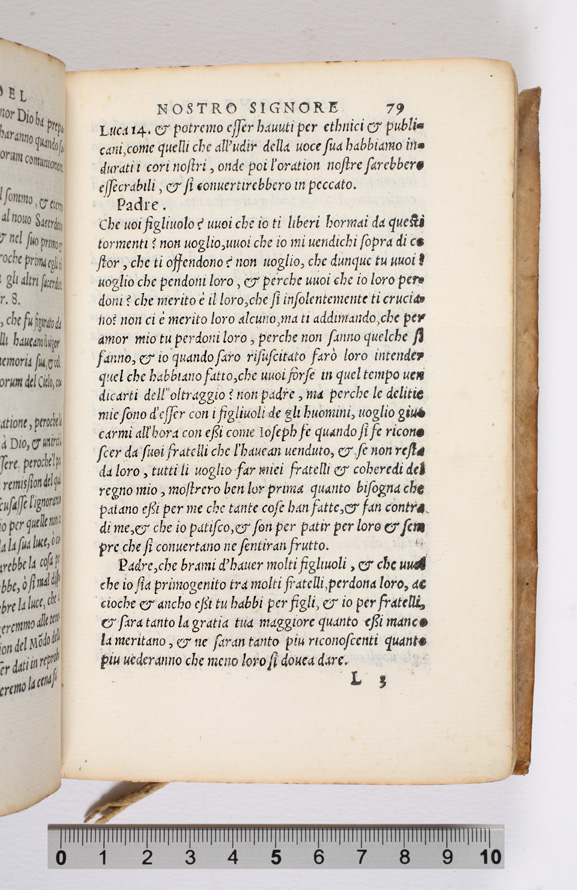 NOSTRO SIGNORE 79
Luca 14. & potremo esser hauuti per ethnici & publi=
cani, come quelli che all'udir della uoce sua habbiamo in=
durati i cori nostri, onde poi l'oration nostre sarebbero
essecrabili, & si conuertirebbero in peccato.
Padre.
Che uoi figliuolo? uuoi che io ti liberi hormai da questi
tormenti? non uoglio, uuoi che io mi uendichi sopra di co
stor, che ti offendono? non uoglio, che dunque tu uuoi?
uoglio che pendoni loro, & perche uuoi che io loro per=
doni? che merito è il loro, che si insolentemente ti crucia=
no? non ci è merito loro alcuno, ma ti addimando, che per
amor mio tu perdoni loro, perche non sanno quelche si
fanno, & io quando saro risuscitato farò loro intender
quel che habbiano fatto, che uuoi forse in quel tempo uen
dicarti dell'oltraggio? non padre, ma perche le delitie
mie sono d'esser con i figliuoli de gli huomini, uoglio giu=
carmi all'hora con essi come Ioseph fe quando si fe ricono
scer da suoi fratelli che l'hauean uenduto, & se non resta
da loro, tutti li uoglio far miei fratelli & coheredi del
regno mio, mostrero ben lor prima quanto bisogna che
patano essi per me che tante cose han fatte, & fan contra
di me, & che io patisco, & son per patir per loro & sem
pre che si conuertano ne sentiran frutto.
Padre, che brami d'hauer molti figliuoli, & che uuoi
che io sia primogenito tra molti fratelli, perdona loro, ac
cioche & ancho essi tu habbi per figli, & io per fratelli,
& sara tanto la gratia tua maggiore quanto essi manco
la meritano, & ne saran tanto piu riconoscenti quanto
piu uederanno che meno loro si douea dare.
L 3
0 1 2 3 4 5 6 7 8 9 10